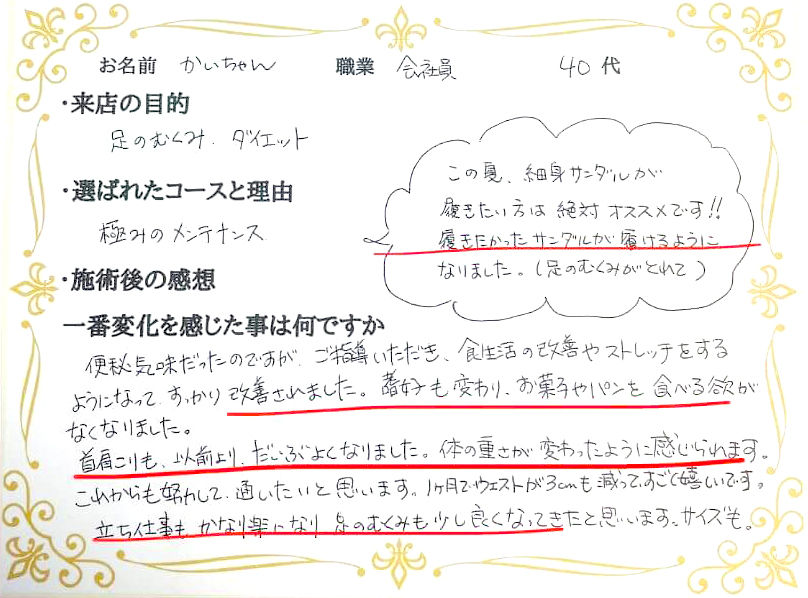 お名前 かいちゃん 職業 会社員 40代
・来店の目的
足のむくみ、ダイエット
・選ばれたコースと理由
極みのメンテナンス
この夏、細身サンダルが
履きたい方は絶対オススメです!!
履きたかったサンダルが履けるように
なりました。(足のむくみがとれて)
・施術後の感想
一番変化を感じた事は何ですか
便秘気味だったのですが、ご指導いただき、食生活の改善やストレッチをする
ようになって、すっかり改善されました。嗜好も変わり、お菓子やパンを食べる欲が
なくなりました。
首肩こりも、以前より、だいぶよくなりました。体の重さが変わったように感じられます。
これからも努力して、通いたいと思います。1ヶ月でウエストが3cmも減ってすごく嬉しいです。
立ち仕事も、かなり楽になり 足のむくみも少し良くなってきたと思います。サイズも。